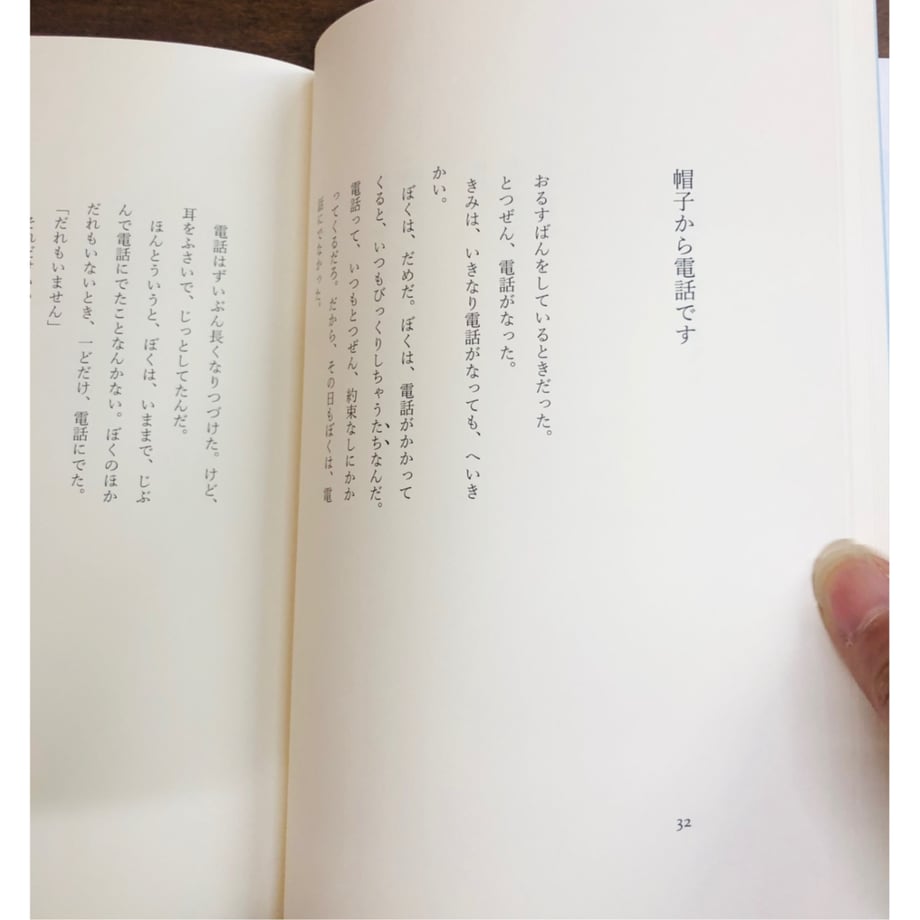 帽子から電話です
おるすばんをしているときだった。
とつぜん、電話がなった。
きみは、いきなり電話がなっても、へいき
かい。
ぼくは、だめだ。ぼくは、電話がかかって
くると、いつもびっくりしちゃうたちなんだ。
電話って、いつもとつぜん、約束なしにかか
ってくるだろ。だから、その日もぼくは、電
話にでなかった。
32
電話はずいぶん長くなりつづけた。けど、
耳をふさいで、じっとしてたんだ。
ほんとういうと、ぼくは、いままで、じぶ
んで電話にでたことなんかない。ぼくのほか
だれもいないとき、一どだけ、電話にでた。
「だれもいません」